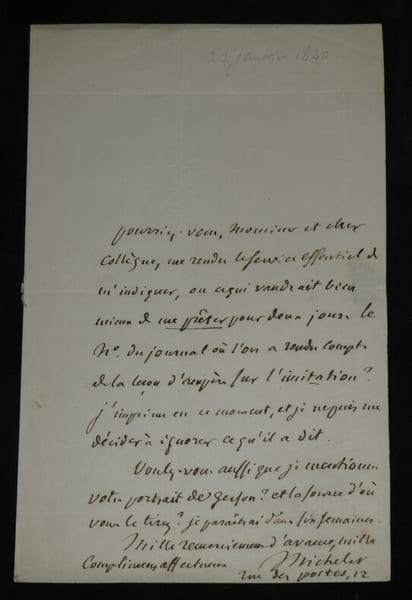 23 janvier 1840
pourriez-vous, Monsieur et cher
Collègue, me rendre le service essentiel de
m'indiquer, ou ce qui vaudrait bien
mieux de me prêter pour deux jours le
No. du journal où l'on a rendu compte
de la leçon d' sur l'imitation?
j'imprime en ce moment, et je ne puis me
décider à ignorer ce qu'il a dit.
Voulez-vous aussi que je mentionne
votre portrait de Gerson? et la source d'où
vous le tirez? je paraîtrai dans six semaines.
Mille remerciemens d'avance, mille
Complimens affectueux
Michelet
rue des postes, 12